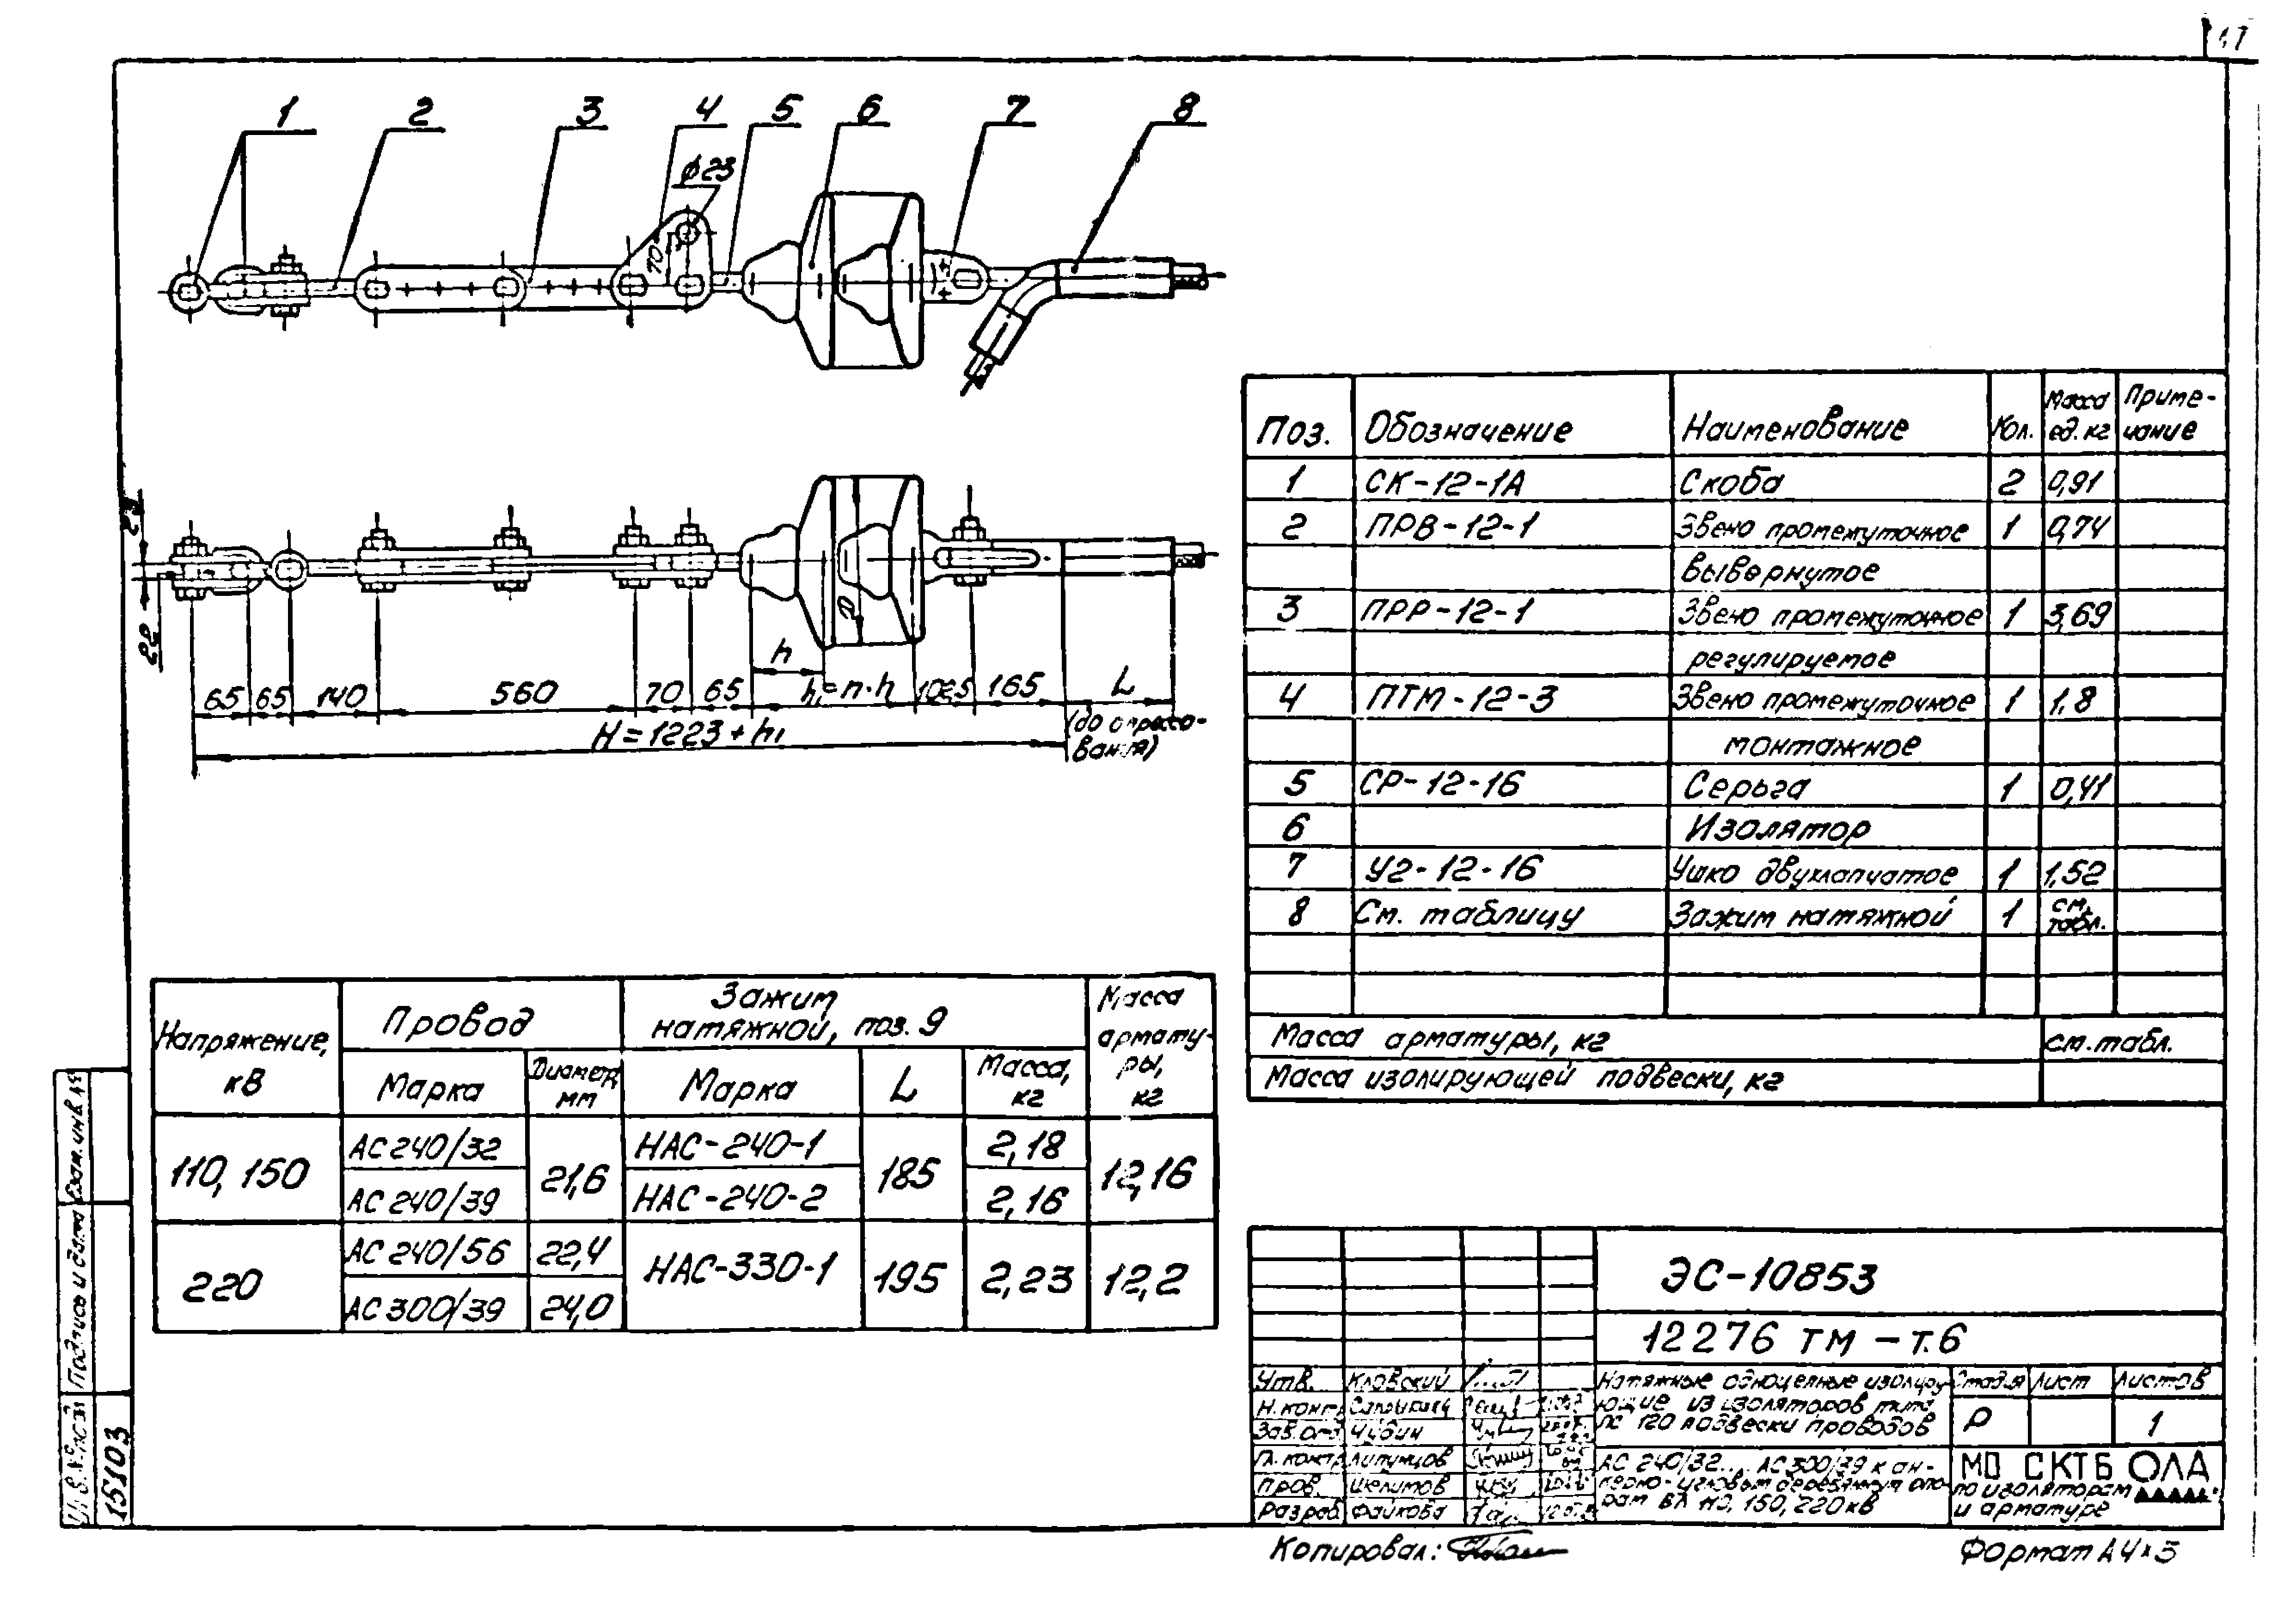 1 2 3 4 5 6 7 8
ϕ23
70
23
22
D
h
65 65 140 560 70 65 h₁=n·h 102,5 165 L
H=1223+h₁
(до опрессо-
вания)
Поз. Обозначение Наименование Кол. Масса ед. кг Приме-
чание
1 СК-12-1А Скоба 2 0,91
2 ПРВ-12-1 Звено промежуточное 1 0,74
вывернутое
3 ПРР-12-1 Звено промежуточное 1 3,69
регулируемое
4 ПТМ-12-3 Звено промежуточное 1 1,8
монтажное
5 СР-12-16 Серьга 1 0,41
6 Изолятор
7 У2-12-16 Ушко двухлапчатое 1 1,52
8 См. таблицу Зажим натяжной 1 см. табл.
Масса арматуры, кг см. табл.
Масса изолирующей подвески, кг
Напряжение, кВ
Провод
Зажим
натяжной, поз. 9
Масса
армату-
ры,
кг
Марка Диаметр, мм Марка L Масса, кг
110, 150 АС 240/32 21,6 НАС-240-1 185 2,18 12,16
АС 240/39 НАС-240-2 2,16
220 АС 240/56 22,4 НАС-330-1 195 2,23 12,2
АС 300/39 24,0
ЭС-10853
12276 тм – т.6
Утв. Кловский
Н. контр.
Зав. отд. Чудин
Гл. контр.
Пров. Шелипов
Разраб. Файкова
Натяжные одноцепные изолиру-
ющие из изоляторов типа
ПС 120 подвески проводов
АС 240/32... АС 300/39 к ан-
керно-угловым деревянным опо-
рам ВЛ 110, 150, 220 кВ
Стадия Лист Листов
Р 1
МО СКТБ
по изоляторам
и арматуре
Копировал:
Формат А4×3
Инв. № подл. Подпись и дата Взам. инв. №
15103